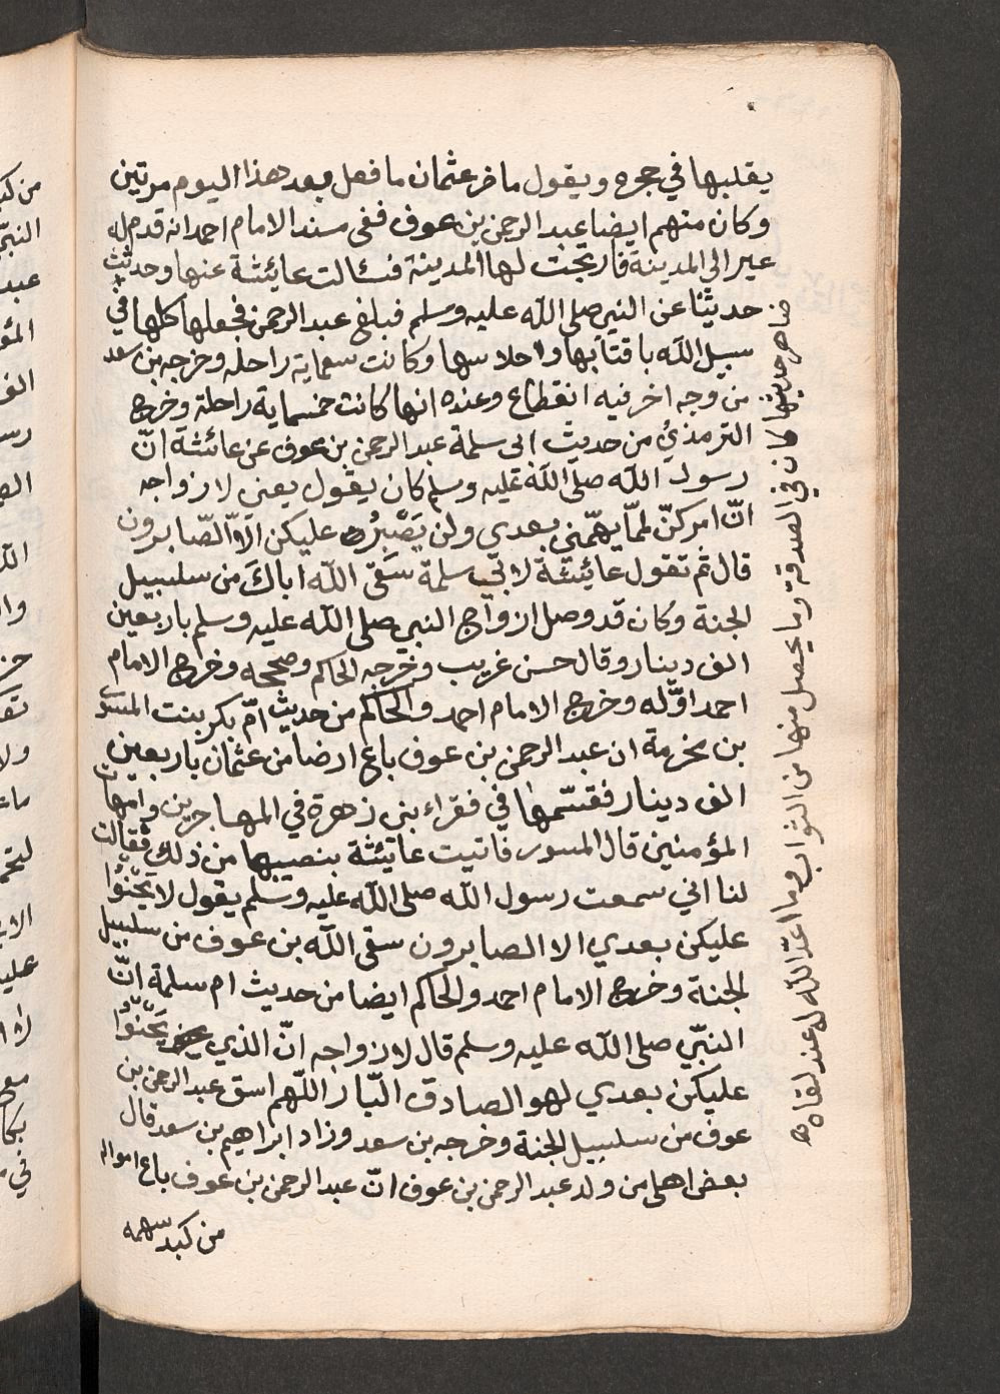 يقلبها في حجره ويقول ما ضر عثمان ما فعل بعد هذا اليوم مرتين
وكان منهم ايضا عبد الرحمن بن عوف ففي مسند الامام احمد انه قدم له
عير الى المدينة فارتجت لها المدينة فسالت عايشة عنها وحدثت
حديثا عن النبي صلى الله عليه وسلم فبلغ عبد الرحمن فجعلها كلها في
سبيل الله باقتابها واحلاسها وكانت سبعماية راحله وخرجه بن سعد
من وجه اخر فيه انقطاع وعنده انها كانت خمسماية راحلة وخرج
الترمذيُ من حديث ابى سلمة عبد الرحمن بن عوف عن عائشة انّ
رسول الله صلى الله عليه وسلم كان يقول يعني لازواجه
انّ امركنّ لممّا يهمّني بعدي ولن يَصْبِرُ عليكن الاّ الصّابرون
قال ثم تقول عائشة لابي سلمة سَقَى الله اباكَ من سلسبيل
الجنة وكان قد وصل ازواج النبي صلى الله عليه وسلم باربعين
الف دينار وقال حسن غريب وخرجه الحاكم وصححه وخرج الامام
احمد اوّله وخرج الامام احمد والحاكم من حديث امّ بكر بنت المسور
بن مخرمة ان عبد الرحمن بن عوف باع ارضا من عثمان باربعين
الف دينار فقسّمها في فقراء بني زهرة في المهاجرين وامهات
المؤمنين قال المسور فأتيت عايشة بنصيبها من ذلك فقالت
لنا اني سمعت رسول الله صلى الله عليه وسلم يقول لا يَحْنُوا
عليكن بعدي الا الصابرون سقى الله بن عوف من سلسبيل
الجنة وخرج الامام احمد والحاكم ايضا من حديث ام سلمة انّ
النبّي صلى الله عليه وسلم قال لازواجه انّ الذي يَحْنُوا
عليكن بعدي لهو الصادق البّار اللّهم اسق عبد الرحمن بن
عوف من سلسبيل الجنة وخرجه بن سعد وزاد ابراهيم بن سعد قال
بعض اهلى من ولد عبد الرحمن بن عوف انّ عبد الرحمن بن عوف باع امواله
من كيدسهمه
حديثها كان في الصدقة وما يحصل منها من الثواب وما اعدّ الله له عند لقاه